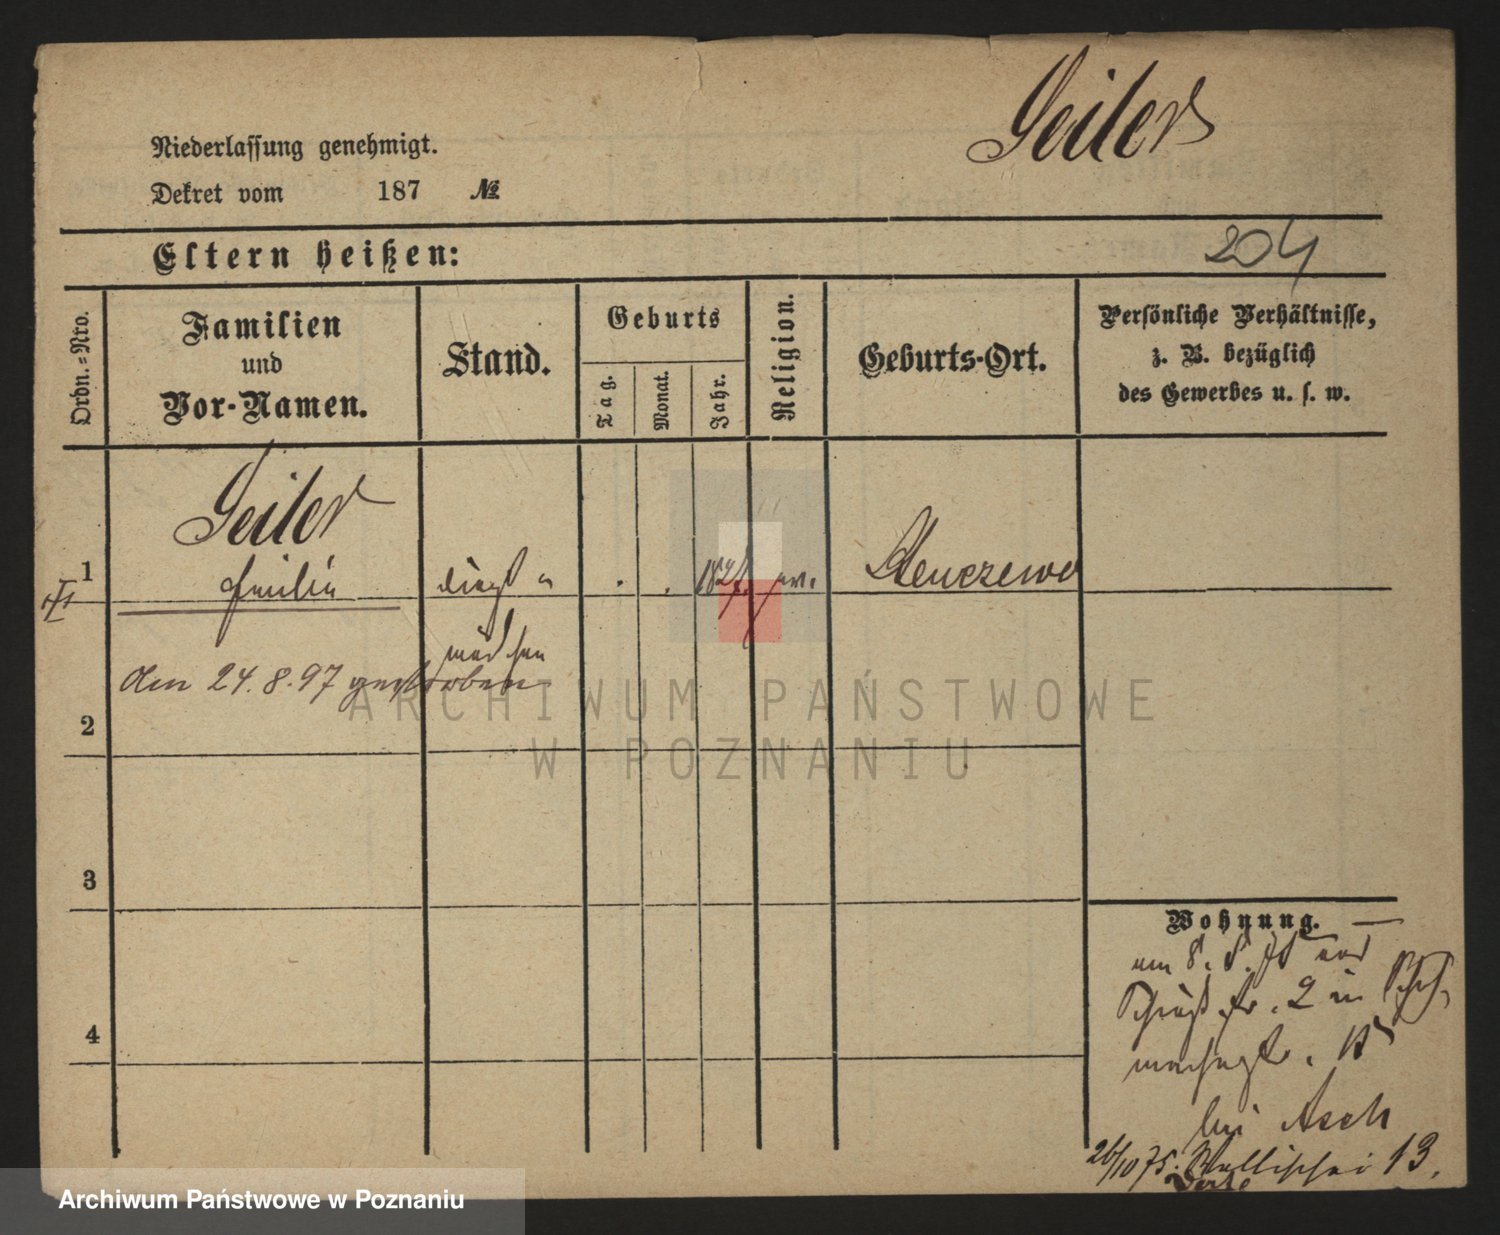 Seiler
Niederlassung genehmigt.
Dekret vom 187 №
Eltern heißen:
204
Ordn.-Nro.
Familien
und
Vor-Namen.
Stand.
Geburts
Tag.
Monat.
Jahr.
Religion.
Geburts-Ort.
Persönliche Verhältnisse,
z. B. bezüglich
des Gewerbes u. s. w.
Seiler
1 Emilie
ev.
Stenczewo
mädchen
den 24.8.97 gestorben
2
3
4
Wohnung.
am 8.
2 in
bei Asch
26/10 75. Wallischei 13.
ARCHIWUM PAŃSTWOWE
W POZNANIU
Archiwum Państwowe w Poznaniu